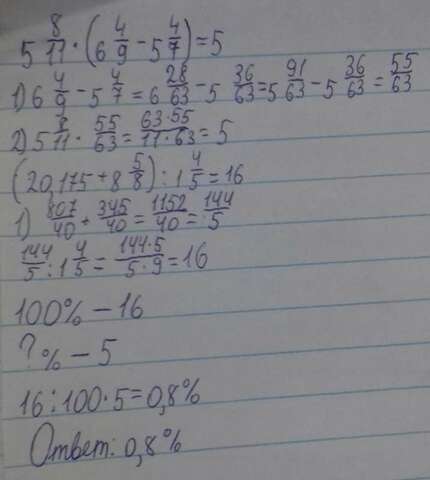 5 8/11 · (6 4/9 - 5 4/7) = 5
1) 6 4/9 - 5 4/7 = 6 28/63 - 5 36/63 = 5 91/63 - 5 36/63 = 55/63
2) 5 8/11 · 55/63 = 63·55/11·63 = 5
(20,175 + 8 5/8) : 1 4/5 = 16
1) 807/40 + 345/40 = 1152/40 = 144/5
144/5 : 1 4/5 = 144·5/5·9 = 16
100% - 16
?% - 5
16:100·5=0,8%
Ответ: 0,8%